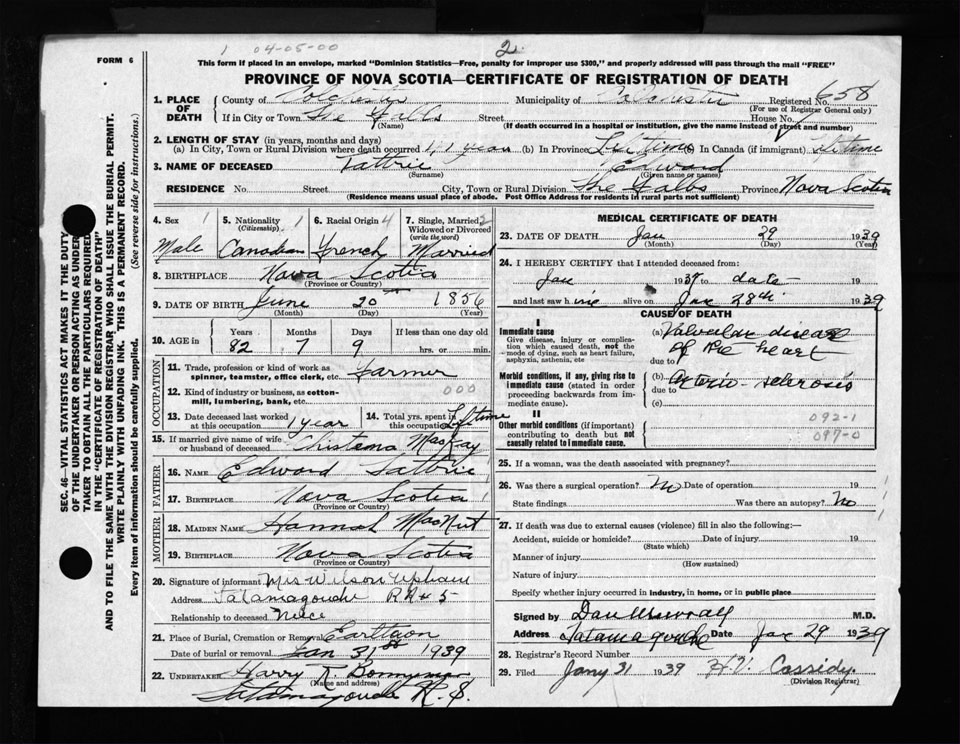 1 04-05-00
2.
FORM 6
This form if placed in an envelope, marked "Dominion Statistics—Free, penalty for improper use $300," and properly addressed will pass through the mail "FREE"
PROVINCE OF NOVA SCOTIA—CERTIFICATE OF REGISTRATION OF DEATH
SEC. 46—VITAL STATISTICS ACT MAKES IT THE DUTY
OF THE UNDERTAKER OR PERSON ACTING AS UNDER-
TAKER TO OBTAIN ALL THE PARTICULARS REQUIRED
IN THE "CERTIFICATE OF REGISTRATION OF DEATH"
AND TO FILE THE SAME WITH THE DIVISION REGISTRAR WHO SHALL ISSUE THE BURIAL PERMIT.
WRITE PLAINLY WITH UNFADING INK. THIS IS A PERMANENT RECORD.
Every item of information should be carefully supplied. (See reverse side for instructions.)
1. PLACE OF DEATH County of Colchester Municipality of Colchester Registered No. 658
(For use of Registrar General only)
If in City or Town The Falls Street House No.
(Name) (If death occurred in a hospital or institution, give the name instead of street and number)
2. LENGTH OF STAY (in years, months and days)
(a) In City, Town or Rural Division where death occurred year (b) In Province Lifetime (c) In Canada (if immigrant) lifetime
3. NAME OF DECEASED Tattrie Edward
(Surname) (Given name or names)
RESIDENCE No. Street City, Town or Rural Division The Falls Province Nova Scotia
(Residence means usual place of abode. Post Office Address for residents in rural parts not sufficient)
4. Sex 1 Male
5. Nationality 1 (Citizenship) Canadian
6. Racial Origin 4 French
7. Single, Married, 2 Widowed or Divorced (write the word) Married
8. BIRTHPLACE Nova Scotia
(Province or Country)
9. DATE OF BIRTH June 20 1856
(Month) (Day) (Year)
10. AGE in Years 82 Months 7 Days 9 If less than one day old hrs. or min.
OCCUPATION
11. Trade, profession or kind of work as spinner, teamster, office clerk, etc. Farmer
12. Kind of industry or business, as cotton-mill, lumbering, bank, etc. 000
13. Date deceased last worked at this occupation 1 year
14. Total yrs. spent in this occupation Lifetime
15. If married give name of wife or husband of deceased Christena MacKay
FATHER
16. NAME Edward Tattrie
17. BIRTHPLACE Nova Scotia 1
(Province or Country)
MOTHER
18. MAIDEN NAME Hannah MacNut
19. BIRTHPLACE Nova Scotia
(Province or Country)
20. Signature of informant Mrs Wilson Upham
Address Tatamagouche RR# 5
Relationship to deceased Niece
21. Place of Burial, Cremation or Removal Earltown
Date of burial or removal Jan 31st 1939
22. UNDERTAKER Harry R.
(Name and address)
Tatamagouche
MEDICAL CERTIFICATE OF DEATH
23. DATE OF DEATH Jan 29 1939
(Month) (Day) (Year)
24. I HEREBY CERTIFY that I attended deceased from:
Jan 1937 to date 19
and last saw him alive on Jan 28th 1939
CAUSE OF DEATH
I
Immediate cause
Give disease, injury or complication which caused death, not the mode of dying, such as heart failure, asphyxia, asthenia, etc
(a) Valvular disease
of the heart
due to
Morbid conditions, if any, giving rise to immediate cause (stated in order proceeding backwards from immediate cause).
(b) Arterio-sclerosis
due to
(c)
II
Other morbid conditions (if important) contributing to death but not causally related to immediate cause.
092-1
097-0
25. If a woman, was the death associated with pregnancy?
26. Was there a surgical operation? No Date of operation 19
State findings Was there an autopsy? No
27. If death was due to external causes (violence) fill in also the following:—
Accident, suicide or homicide? Date of injury 19
(State which)
Manner of injury
(How sustained)
Nature of injury
Specify whether injury occurred in industry, in home, or in public place
Signed by Dan M.D.
Address Tatamagouche Date Jan 29 1939
28. Registrar's Record Number
29. Filed Jany 31 1939 H.V. Cassidy
(Division Registrar)